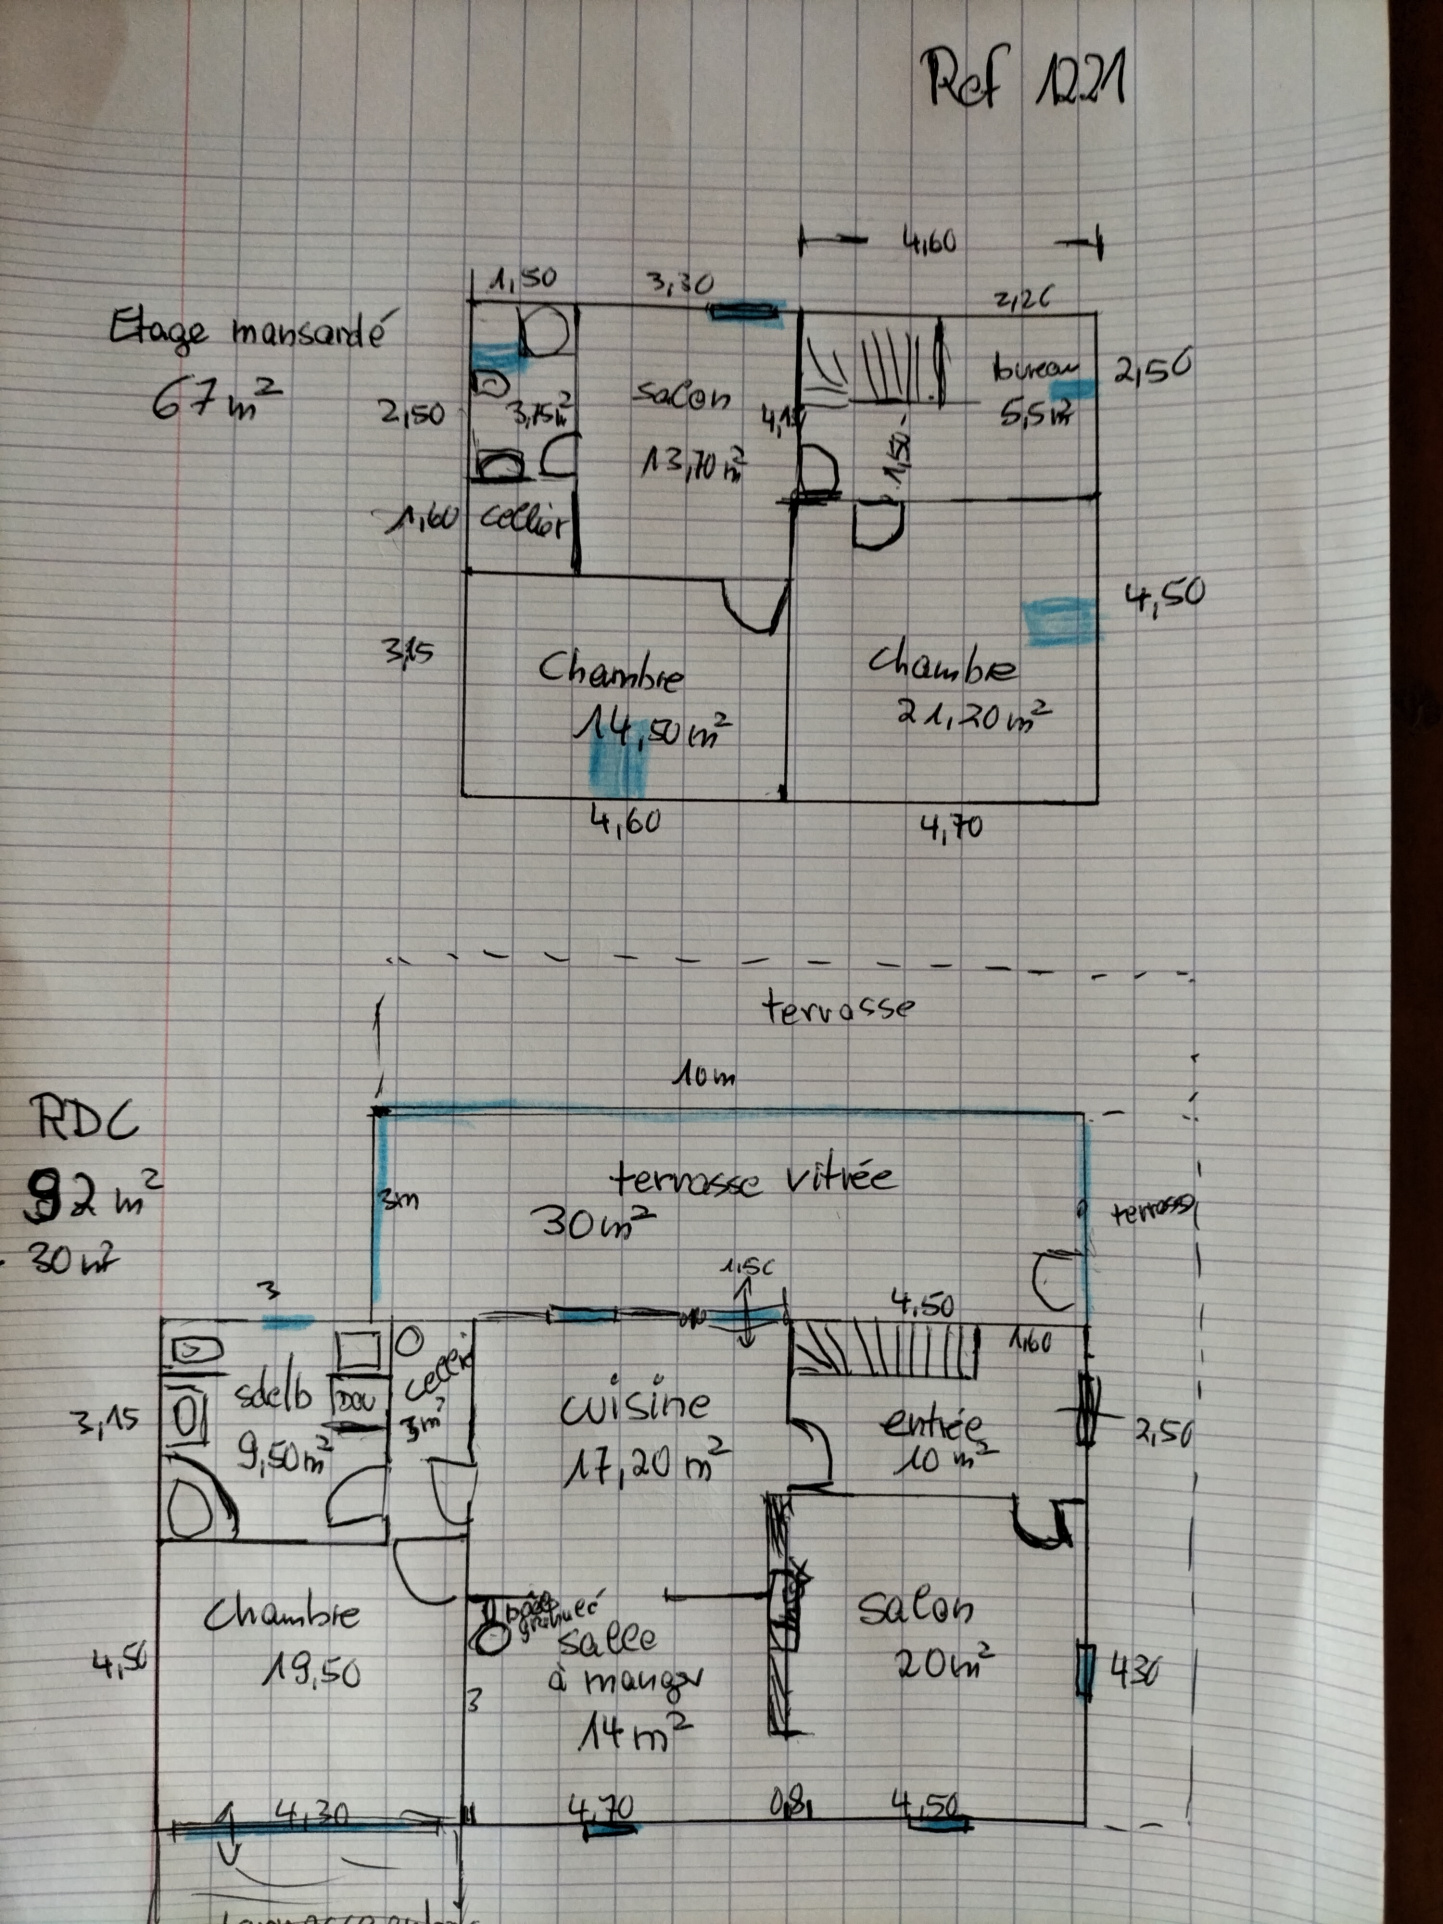 Ref 1221
4,60
1,50
3,30
2,20
Etage mansardé
67 m²
2,50
3,75 m²
salon
13,70 m²
4,15
bureau
5,5 m²
2,50
1,50
1,60
cellier
3,15
Chambre
14,50 m²
4,60
chambre
21,20 m²
4,50
4,70
terrasse
10m
RDC
92 m²
30 m²
3m
terrasse vitrée
30 m²
terrasse
3
1,50
4,50
1,60
3,15
sdelb
9,50 m²
DOU
cellier
3 m²
cuisine
17,20 m²
entrée
10 m²
2,50
chambre
19,50
4,50
4,30
salle
à manger
14 m²
3
4,70
0,8
salon
20 m²
430
4,50